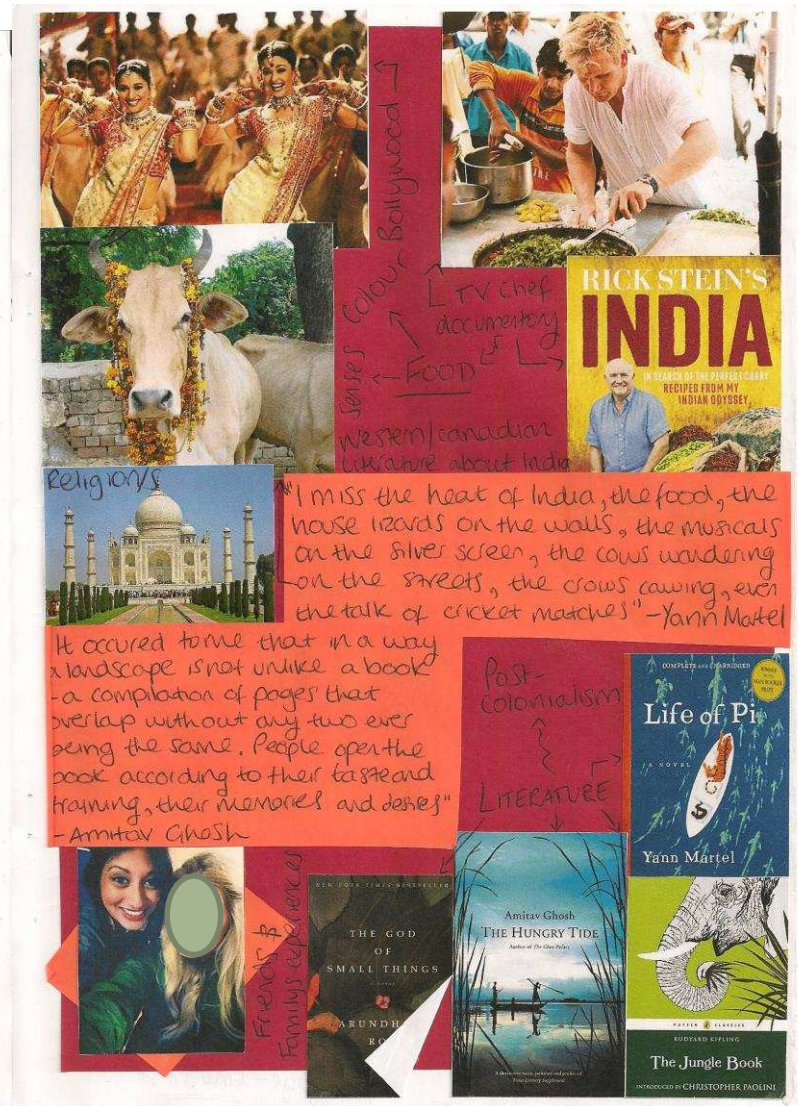 Bollywood
Colour
Senses
TV chef
documentary
FOOD
RICK STEIN'S
INDIA
IN SEARCH OF THE PERFECT CURRY
RECIPES FROM MY
INDIAN ODYSSEY
Western/canadian
literature about India
Religion/s
"I miss the heat of India, the food, the
house lizards on the walls, the musicals
on the silver screen, the cows wandering
on the streets, the crows cawing, even
the talk of cricket matches" - Yann Martel
It occured to me that in a way
a landscape is not unlike a book
- a compilation of pages that
overlap without any two ever
being the same. People open the
book according to their taste and
training, their memories and desires"
- Amitav Ghosh
Post-
colonialism
LITERATURE
COMPLETE AND UNABRIDGED
WINNER
OF THE
MAN BOOKER
PRIZE
Life of Pi
A NOVEL
Yann Martel
Friends &
Familys experiences
NEW YORK TIMES BESTSELLER
THE GOD
OF
SMALL THINGS
a novel
ARUNDH
RO
Amitav Ghosh
THE HUNGRY TIDE
Author of The Glass Palace
Times Literary Supplement
PUFFIN CLASSICS
RUDYARD KIPLING
The Jungle Book
INTRODUCED BY CHRISTOPHER PAOLINI